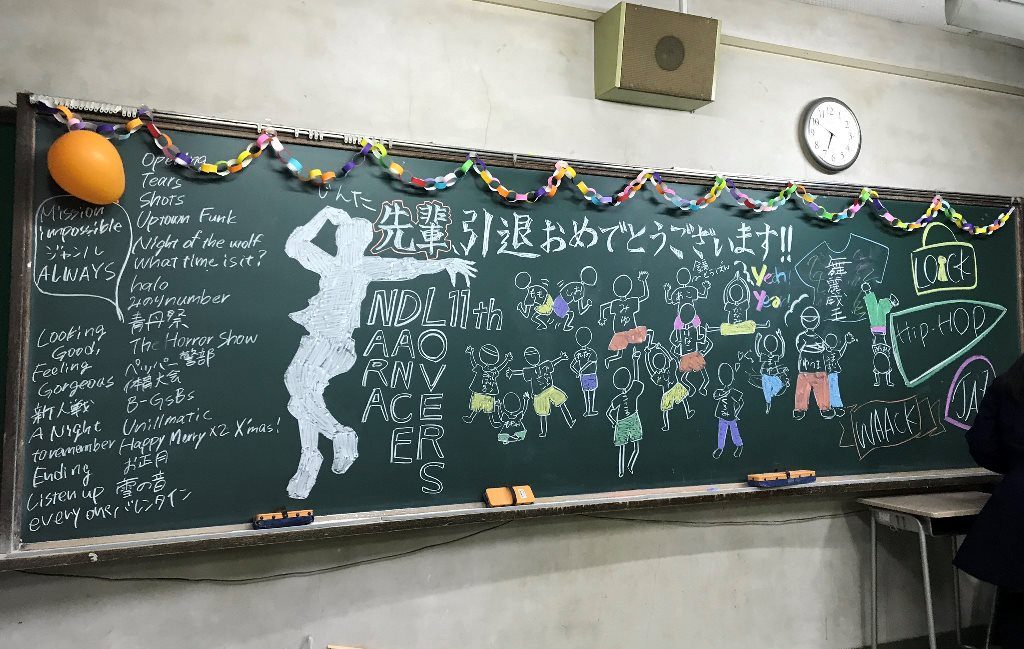 Mission
Impossible
ジャンル
ALWAYS
Looking
Good,
Feeling
Gorgeous
新人戦
A Night
to remember
Ending
Listen up
everyone
Opening
Tears
Shots
Uptown Funk
Night of the wolf
What time is it?
halo
みのりnumber
青丹祭
The Horror Show
ペッパー警部
体育大会
B-GsBs
Unillmatic
Happy Merry x2 X'mas!
お正月
雪の音
バレンタイン
じんた
先輩引退おめでとうございます!!
NARA
DANCE
LOVERS
11th
みゆ
yeh!
Yea!
舞麗威王
LOCK
HiP-HOP
WAACK!
JA